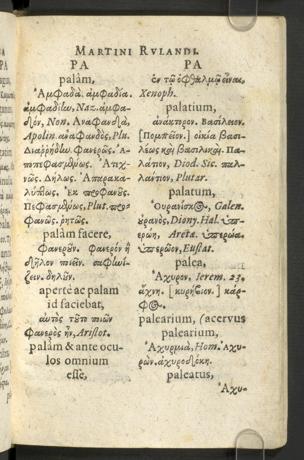 MARTINI RVLANDI.
PA
palàm,
Ἀμφαδά. ἀμφαδία.
ἀμφαδίλω, Naz. ἀμφα-
δὸν, Non. Ἀναφανδὰ,
Apolin. ἀναφανδὸς, Plu.
Διαῤῥήδλω. Φανερῶς. Ἀ-
Ἀτεχ-
νῶς. Δήλως. Ἀπαρακα-
λύπως. Ἐκ προφανοῦς.
Πεφασμθμως, Plut. προ-
φανῶς. ῥητῶς.
palàm facere,
Φανεροῦν. Φανερόν ἢ
δῆλον ποιεῖν. σαφίω-
ζειν. δηλοῦν.
apertè ac palam
id faciebat,
αὐτὸς τοῦτο ποιῶν
φανερὸς ἦν, Aristot.
palàm & ante ocu-
los omnium
esse,
PA
ἐν τῷ ὀφθαλμῷ εἶναι,
Xenoph.
palatium,
ἀνάκτορον. Βασίλειον.
[Πομπεῖον.] οἰκία βασι-
λέως καὶ βασιλικὴ. Πα-
λάτιον, Diod. Sic. παλ-
λάντιον, Plutar.
palatum,
Οὐρανίσκος, Galen.
οὐρανὸς, Diony. Hal. ὑπε-
ρώη, Aretæ. ὑπερῷα.
ὑπερῶον, Eustat.
palea,
Ἄχυρον, Ierem. 23.
ἄχνη. [κυρήβιον.] κάρ-
φος.
palearium, (acervus
palearium,
Ἀχυρμιὰ, Hom. Ἀχυ-
ρὼν. ἀχυροθήκη.
paleatus,
Ἀχυ-